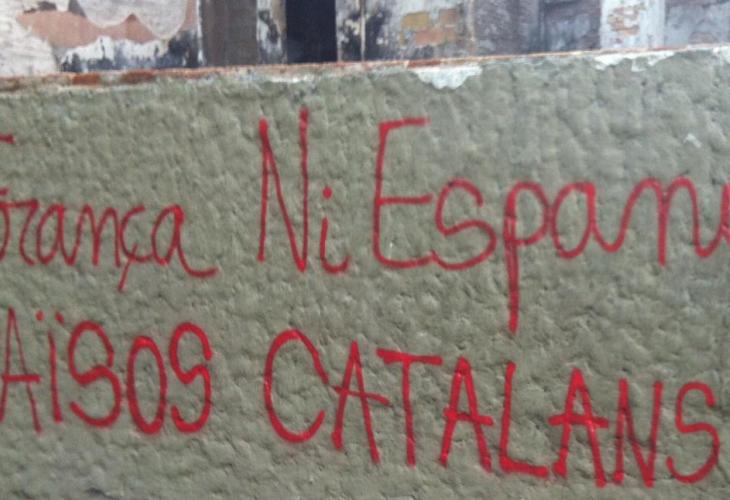 França Ni Espany
PAÏSOS CATALANS